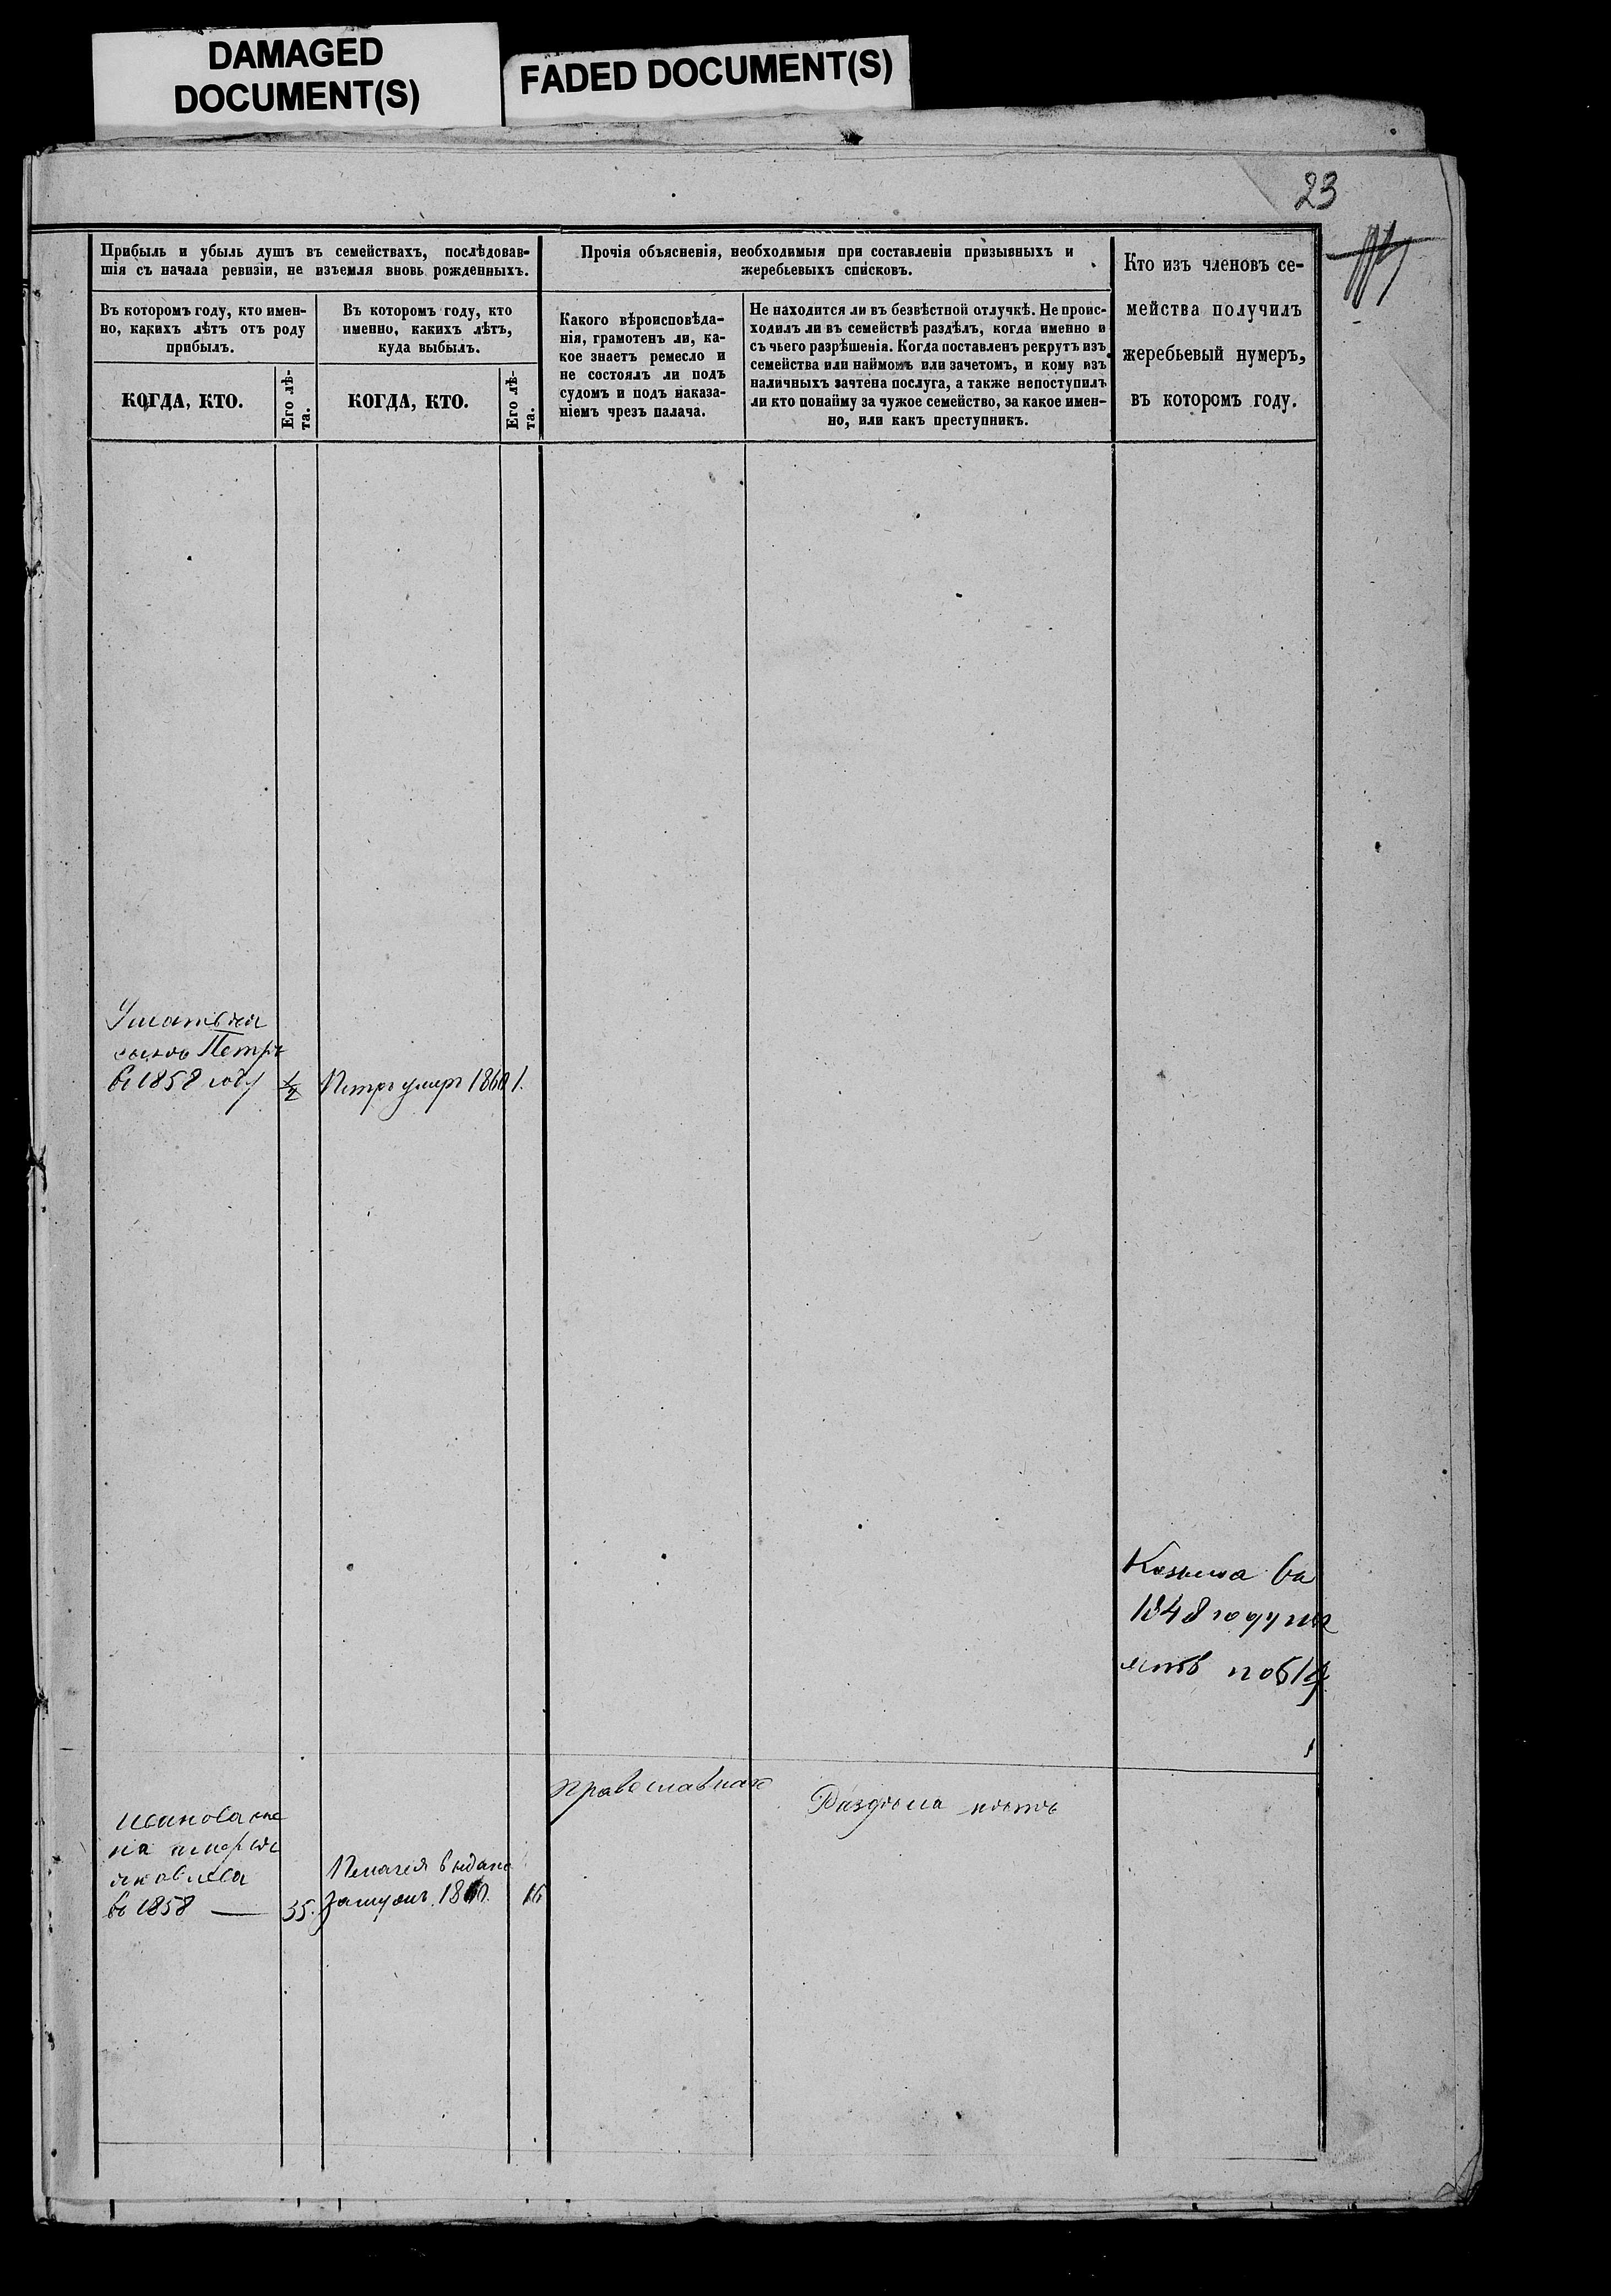 DAMAGED
DOCUMENT(S)
FADED DOCUMENT(S)
23
Прибыль и убыль душъ въ семействахъ, послѣдовав-
шія съ начала ревизіи, не изъемля вновь рожденныхъ.
Въ которомъ году, кто имен-
но, какихъ лѣтъ отъ роду
прибылъ.
КОГДА, КТО.
Его лѣ-
та.
Въ которомъ году, кто
именно, какихъ лѣтъ,
куда выбылъ.
КОГДА, КТО.
Его лѣ-
та.
Прочія объясненія, необходимыя при составленіи призывныхъ и
жеребьевыхъ списковъ.
Какого вѣроисповѣда-
нія, грамотенъ ли, ка-
кое знаетъ ремесло и
не состоялъ ли подъ
судомъ и подъ наказа-
ніемъ чрезъ палача.
Не находится ли въ безвѣстной отлучкѣ. Не проис-
ходилъ ли въ семействѣ раздѣлъ, когда именно и
съ чьего разрѣшенія. Когда поставленъ рекрутъ изъ
семейства или наймомъ или зачетомъ, и кому изъ
наличныхъ зачтена послуга, а также непоступилъ
ли кто понайму за чужое семейство, за какое имен-
но, или какъ преступникъ.
Кто изъ членовъ се-
мейства получилъ
жеребьевый нумеръ,
въ которомъ году.
Уматвея
сынъ Петръ
въ 1858 году 1/2
Петръ умеръ 1860 1.
Козьма въ
1848 году
православнаго
Раздѣла нѣтъ
иванова
яковлева
въ 1858 — 35.
Пелагея выдана
замужъ 16